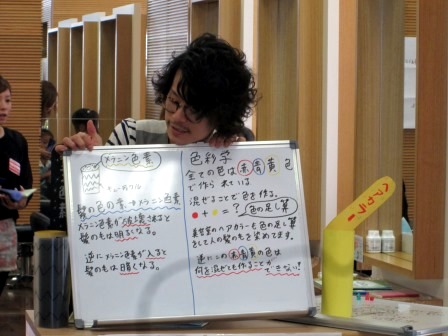 メラニン色素
キューティクル
髪の色の素→メラニン色素
メラニン色素が破壊されると
髪の毛は明るくなる。
逆にメラニン色素が入ると
髪の毛は暗くなる。
色彩学
全ての色は赤青黄色
で作られている
混ぜることで色を作る。
+ = ? 色の足し算
美容室のヘアカラーも色の足し算
をして人の髪の毛を染めてます。
逆にこの赤青黄の色は
何を混ぜても作ることが
できない!
ヘアカラー